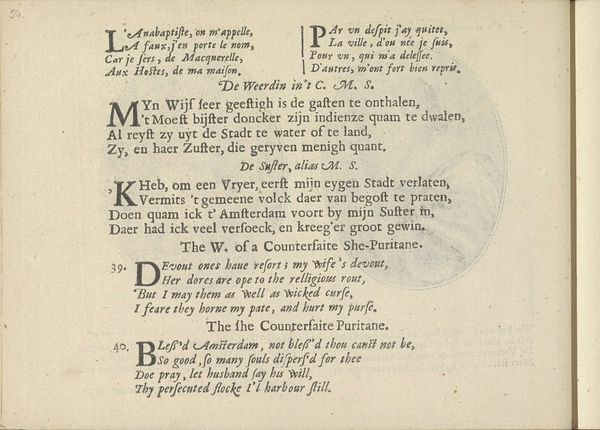 50.
L'Anabaptiſte, on m'appelle,
A faux, j'en porte le nom,
Car je ſers, de Macquerelle,
Aux Hoſtes, de ma maiſon.
PAr vn deſpit j'ay quitee,
La ville, d'ou née je ſuis,
Pour vn, qui m'a deleſſee.
D'autres, m'ont fort bien repriſe.
De Weerdin in't C. M. S.
MYn Wijf ſeer geeſtigh is de gaſten te onthalen,
't Moeſt bijſter doncker zijn indienze quam te dwalen,
Al reyſt zy uyt de Stadt te water of te land,
Zy, en haer Zuſter, die geryven menigh quant.
De Suſter, alias M. S.
'K Heb, om een Vryer, eerſt mijn eygen Stadt verlaten,
Vermits 't gemeene volck daer van begoſt te praten,
Doen quam ick t' Amſterdam voort by mijn Suſter in,
Daer had ick veel verſoeck, en kreeg'er groot gewin.
The W. of a Counterfaite She-Puritane.
39. DEvout ones haue reſort; my wife's devout,
Her dores are ope to the relligious rout,
But I may them as well as wicked curſe,
I feare they horne my pate, and hurt my purſe.
The ſhe Counterfaite Puritane.
40. BLeß'd Amſterdam, not bleß'd thou canſt not be,
So good, ſo many ſouls diſperſ'd for thee
Doe pray, let husband ſay his will,
Thy perſecuted flocke I'l harbour ſtill.